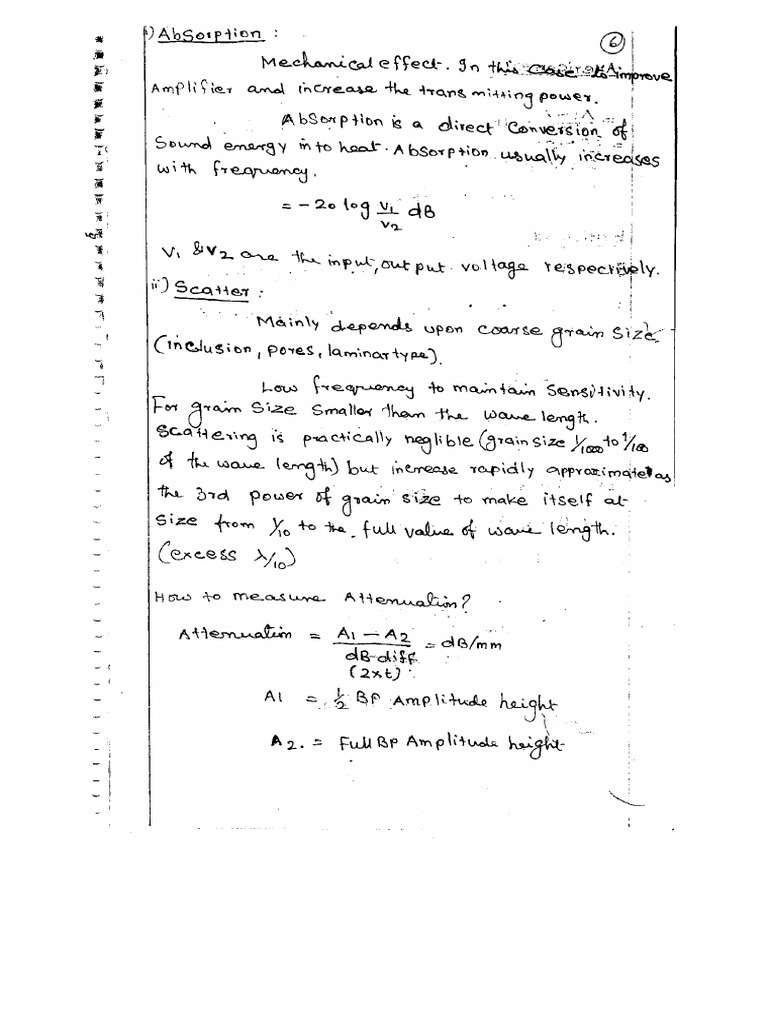 i) Absorption :
6
Mechanical effect. In this case to improve
Amplifier and increase the transmitting power.
Absorption is a direct conversion of
Sound energy in to heat. Absorption usually increases
with frequency.
= -20 log V1/V2 dB
V1 & V2 are the input, output voltage respectively.
ii) Scatter :
Mainly depends upon coarse grain size
(inclusion, pores, laminar type).
Low frequency to maintain sensitivity.
For grain size smaller than the wave length.
Scattering is practically neglible (grain size 1/1000 to 1/100
of the wave length) but increase rapidly approximate as
the 3rd power of grain size to make itself at
size from 1/10 to the full value of wave length.
(excess λ/10)
How to measure Attenuation?
Attenuation = A1 - A2 / dB diff (2xt) = dB/mm
A1 = 1/2 BP Amplitude height
A2. = Full BP Amplitude height